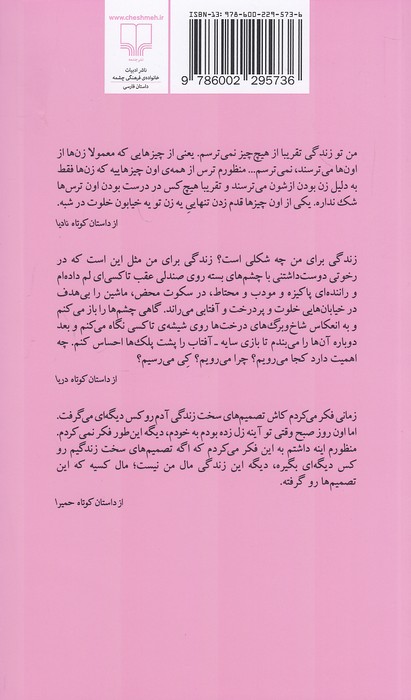 www.cheshmeh.ir
نشرچشمه
ناشر ادبیات
خانواده‌ی فرهنگی چشمه
داستان فارسی
ISBN-13: 978-600-229-573-6
9 786002 295736
من تو زندگی تقریبا از هیچ‌چیز نمی‌ترسم. یعنی از چیزهایی که معمولا زن‌ها از
اون‌ها می‌ترسند، نمی‌ترسم... منظورم ترس از همه‌ی اون چیزهاییه که زن‌ها فقط
به دلیل زن بودن ازشون می‌ترسند و تقریبا هیچ‌کس در درست بودن اون ترس‌ها
شک نداره. یکی از اون چیزها قدم زدن تنهاییِ یه زن تو یه خیابون خلوت در شبه.
از داستان کوتاه نادیا
زندگی برای من چه شکلی است؟ زندگی برای من مثل این است که در
رخوتی دوست‌داشتنی با چشم‌های بسته روی صندلی عقب تاکسی‌ای لم داده‌ام
و راننده‌ای پاکیزه و مودب و محتاط، در سکوت محض، ماشین را بی‌هدف
در خیابان‌هایی خلوت و پردرخت و آفتابی می‌راند. گاهی چشم‌ها را باز می‌کنم
و به انعکاس شاخ‌وبرگ‌های درخت‌ها روی شیشه‌ی تاکسی نگاه می‌کنم و بعد
دوباره آن‌ها را می‌بندم تا بازی سایه ـ آفتاب را پشت پلک‌ها احساس کنم. چه
اهمیت دارد کجا می‌رویم؟ چرا می‌رویم؟ کِی می‌رسیم؟
از داستان کوتاه دریا
زمانی فکر می‌کردم کاش تصمیم‌های سخت زندگی آدم رو کس دیگه‌ای می‌گرفت.
اما اون روز صبح وقتی تو آینه زل زده بودم به خودم، دیگه این‌طور فکر نمی‌کردم.
منظورم اینه داشتم به این فکر می‌کردم که اگه تصمیم‌های سخت زندگیم رو
کس دیگه‌ای بگیره، دیگه این زندگی مال من نیست؛ مال کسیه که این
تصمیم‌ها رو گرفته.
از داستان کوتاه حمیرا